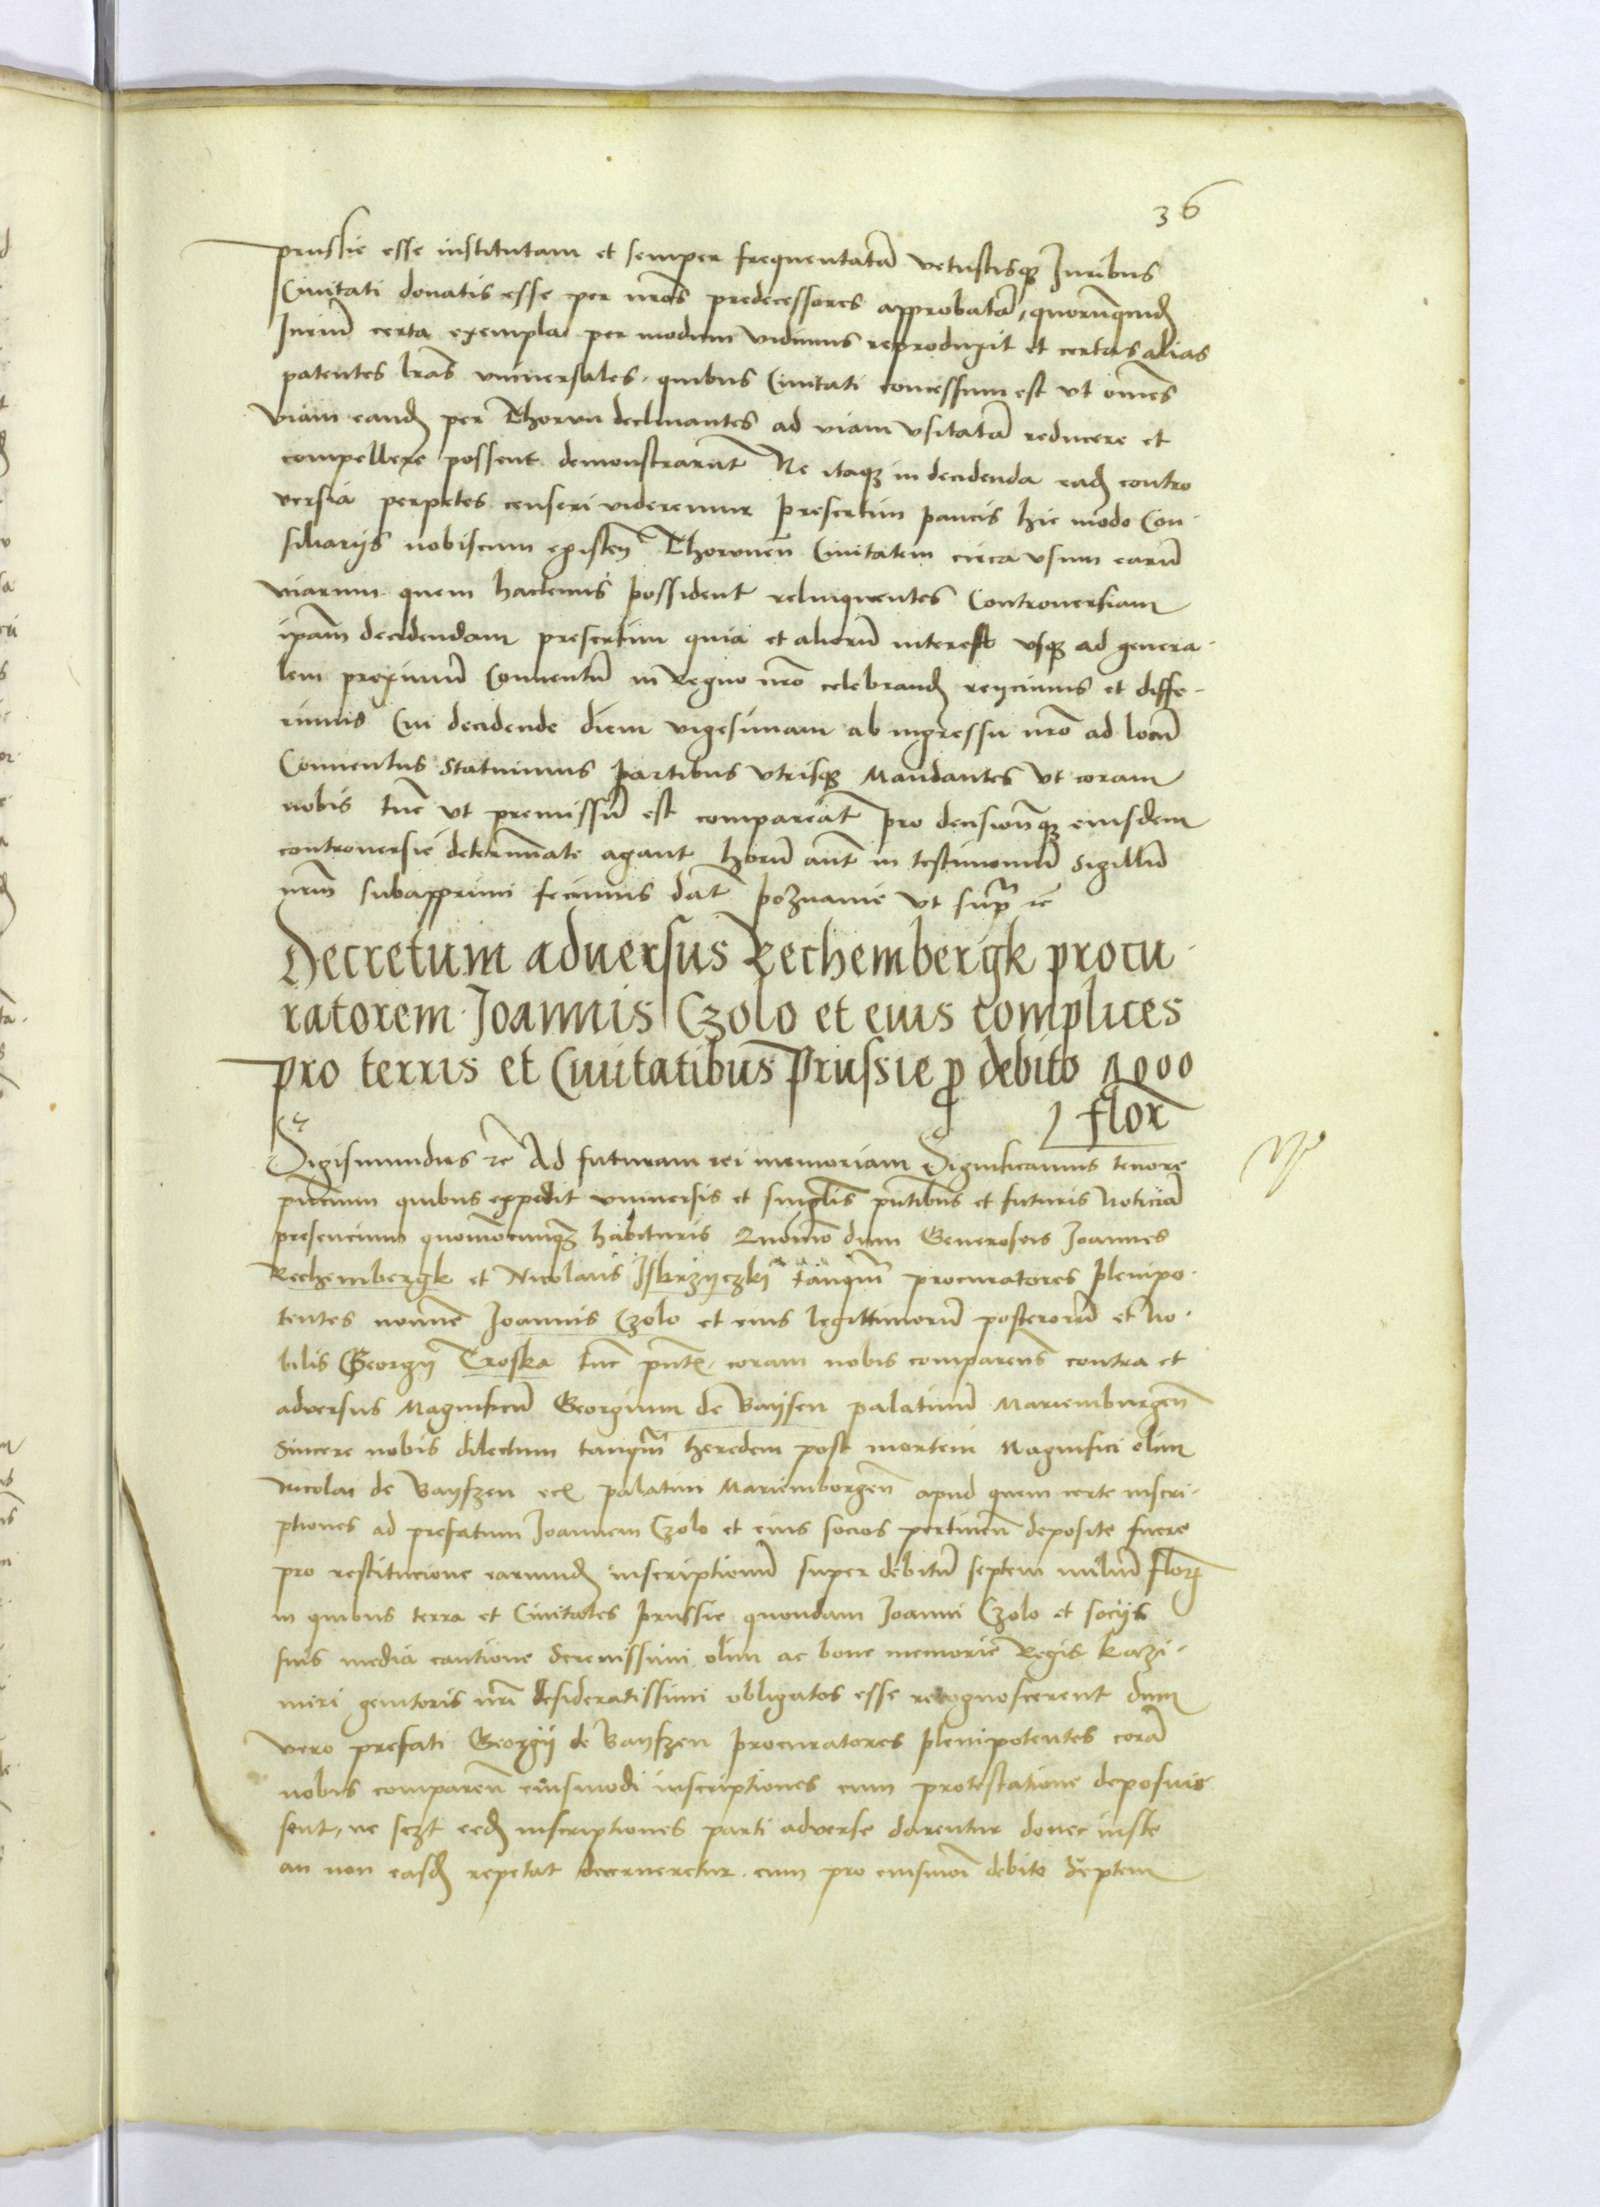 36
prussie esse institutam et semper frequentatã vetustisqʒ Juribus
Civitati donatis esse per nr̃os predecessores approbatã, quorũquid̃
Juriũ certa exempla per modum vidimus reproduxit et certas alias
patentes lr̃as vniuersales. quibus Ciuitati concessum est vt om̃es
viam eand̃ per Thorun declinantes ad viam vsitatã reducere et
compellere possent demonstrarũt Ne itaqʒ in decidenda ead̃ contro
versia perpetes censeri videremur presertim paucis hic modo Con-
siliarijs nobiscum existeñ Thoruneñ Ciuitatem circa vsum earũ
viarum quem hactenus possident relinquentes Controuersiam
ip̃am decidendam presertim quia et aliorũ interest vsqʒ ad genera-
lem proximũ Conuentũ in regno nr̃o celebrand̃ reijcimus et diffe-
rimus Cui decidende diem vigesimam ab ingressu nr̃o ad locũ
Conuentus Statuimus partibus vtrisqʒ Mandantes vt coram
nobis tũc vt premissũ est compareãt pro decisionẽqʒ eiusdem
controuersie determinate agant horũ aũt in testimoniũ Sigillũ
nr̃m subapprimi fecimus Dat̃ poznanie vt supra ꝛc̃
Decretum adversus Rechembergk procu-
ratorem Joannis Czolo et eius complices
pro terris et Civitatibus Prussie ꝓ debito 7000
flor̃
Sigismundus ꝛc̃ Ad futuram rei memoriam Significamus tenore
pñcium quibus expedit vniuersis et singl̃is pñtibus et futuris noticiã
presencium quom̃ocunqʒ habituris Quom̃o dum Generosus Joannes
Rechembergk et Nicolaus Jskrzyczki tanquã procuratores plenipo-
tentes noĩne Joannis Czolo et eius legittimorũ posterorũ et no-
bilis Georgij Troska tũc pñt̃. coram nobis comparens contra et
adversus Magnificũ Georgium de Baysen palatinũ Mariemburgeñ
Sincere nobis dilectum tanquã heredem post mortem Magnifici olim
Nicolai de Bayszen ecĩ palatini Mariemborgeñ apud quem certe inscri-
ptiones ad prefatum Joannem Czolo et eius socios pertineñ deposite fuere
pro restitucione earumd̃ inscriptionũ super debitũ septem miliũ flor̃
in quibus terra et Ciuitates prussie quondam Joanni Czolo et socijs
suis media cautione Serenissimi olim ac bone memorie Regis kazi-
miri genitoris nr̃i desideratissimi obligatos esse recognoscerent dum
vero prefati Georgij de Bayszen procuratores plenipotentes corã
nobis compareñ eiusmodi inscriptiones cum protestatione deposuis
sent, ne eed̃ inscriptiones parti adverse darentur donec iuste
an non easd̃ repetat decerneretur. cum pro eiusmoi debito Septem